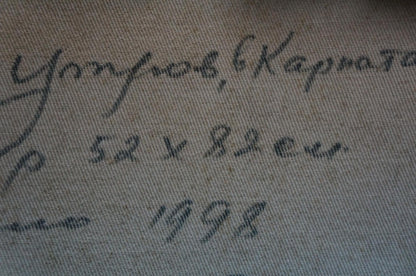 Утров, в Карпата
р 52 х 82 см
1998